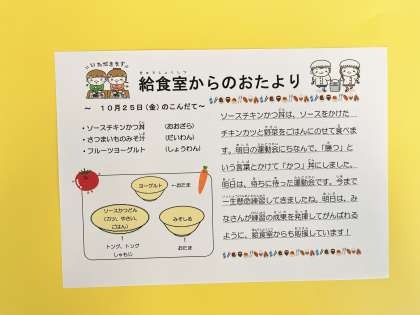 いただきます
給食室からのおたより
きゅうしょくしつ
～ 10月25日(金)のこんだて～
・ソースチキンかつ丼 (おおざら)
・さつまいものみそ汁 (だいわん)
・フルーツヨーグルト (しょうわん)
ヨーグルト ←おたま
ソースかつどん
(カツ、やさい、
ごはん)
みそしる
↑
トング、トング
しゃもじ
↑
おたま
ソースチキンかつ丼は、ソースをかけた
チキンカツと野菜をごはんにのせて食べま
す。明日の運動会にちなんで、「勝つ」と
いう言葉とかけて「かつ」丼にしました。
明日は、待ちに待った運動会です。今まで
一生懸命練習してきましたね。明日は、み
なさんが練習の成果を発揮してがんばれる
ように、給食室からも応援しています！